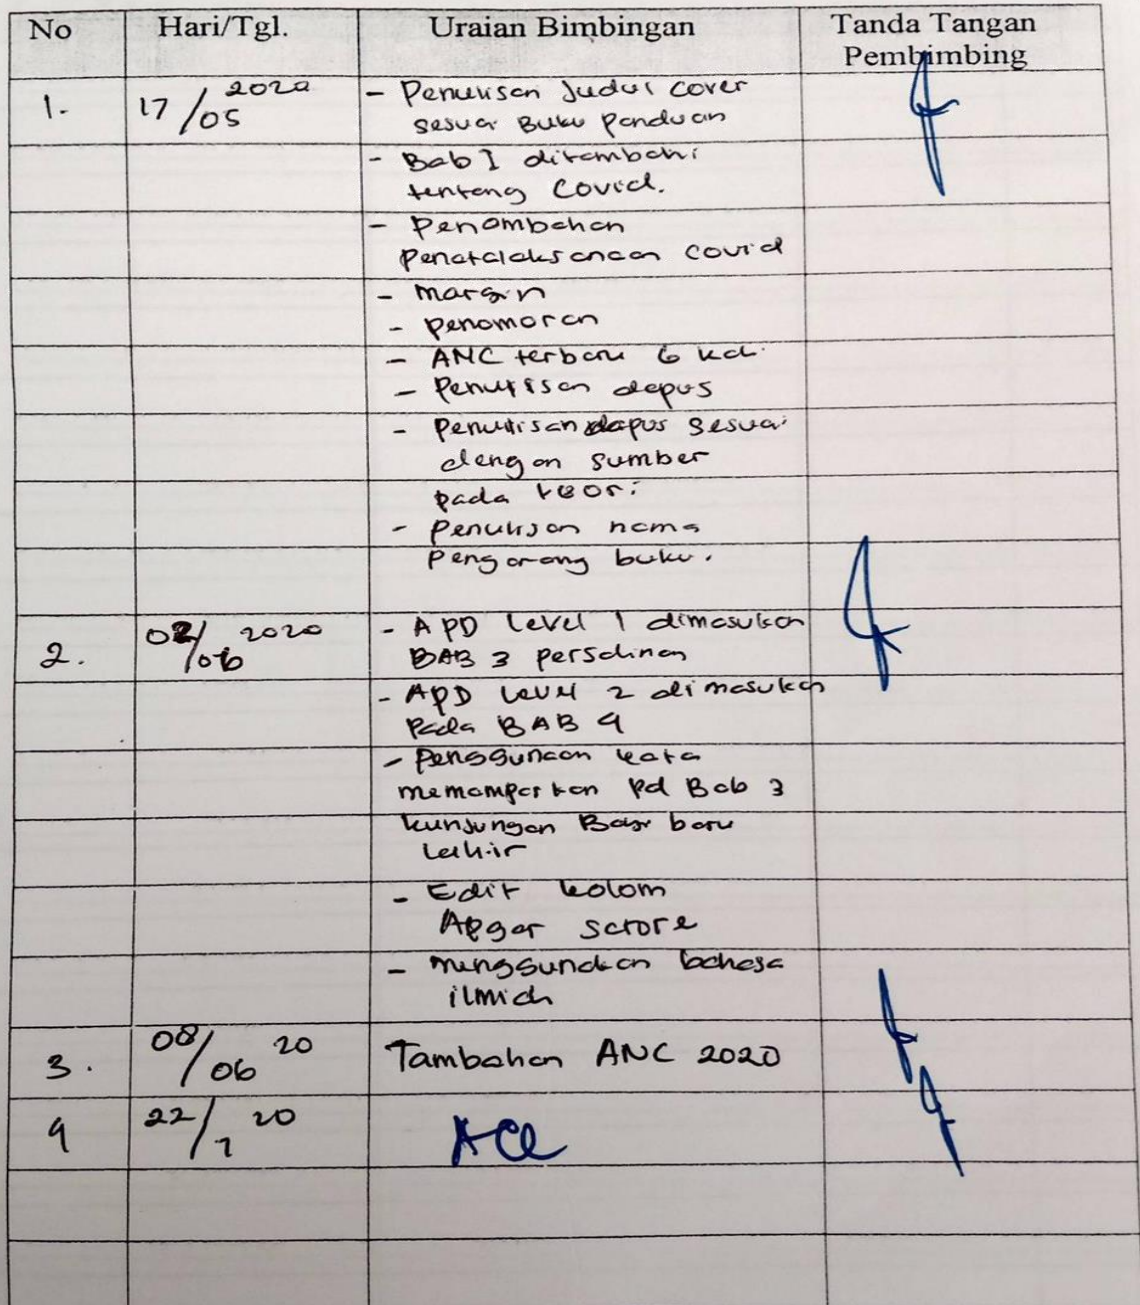 No Hari/Tgl. Uraian Bimbingan Tanda Tangan
Pembimbing
1. 17/05 2020 - Penulisan Judul cover
sesuai Buku panduan
- Bab I ditambahi
tentang Covid.
- Penambahan
penatalaksanaan covid
- margin
- penomoran
- ANC terbaru 6 kali
- Penulisan dapus
- Penulisan dapus sesuai
dengan sumber
pada teori
- Penulisan nama
Pengarang buku.
2. 02/06 2020 - APD Level 1 dimasukan
BAB 3 persalinan
- APD Level 2 dimasukan
Pada BAB 4
- Penggunaan kata
memamparkan pd Bab 3
kunjungan Bayi baru
Lahir
- Edit kolom
Apgar scrore
- menggunakan bahasa
ilmiah
3. 08/06 20 Tambahan ANC 2020
4 22/7 20 ACC